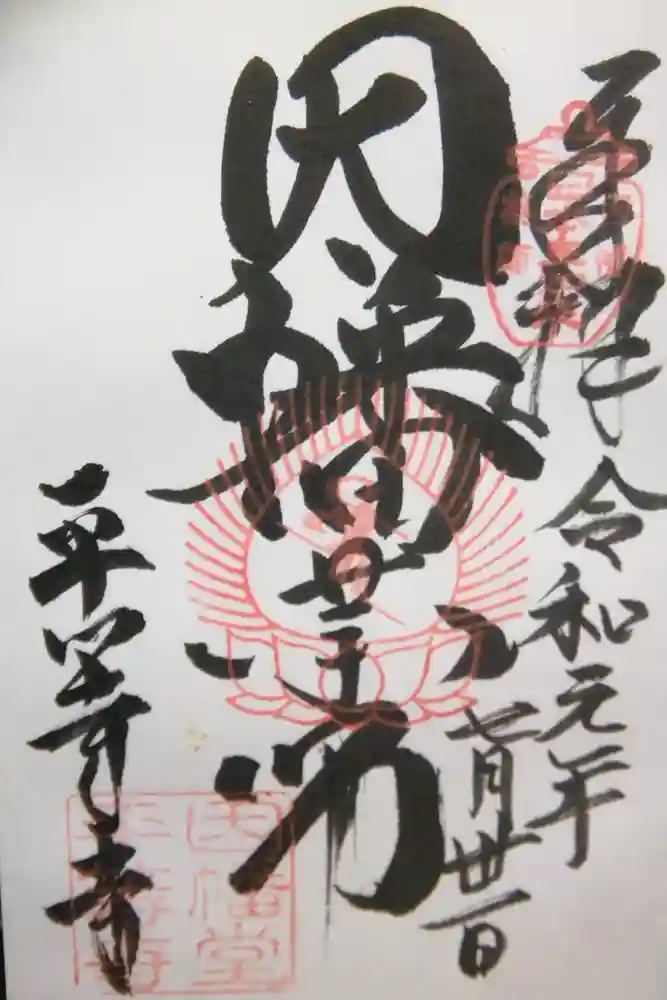 奉拝 令和元年
七月卅一日
因幡堂
平等寺
因幡堂
平等寺